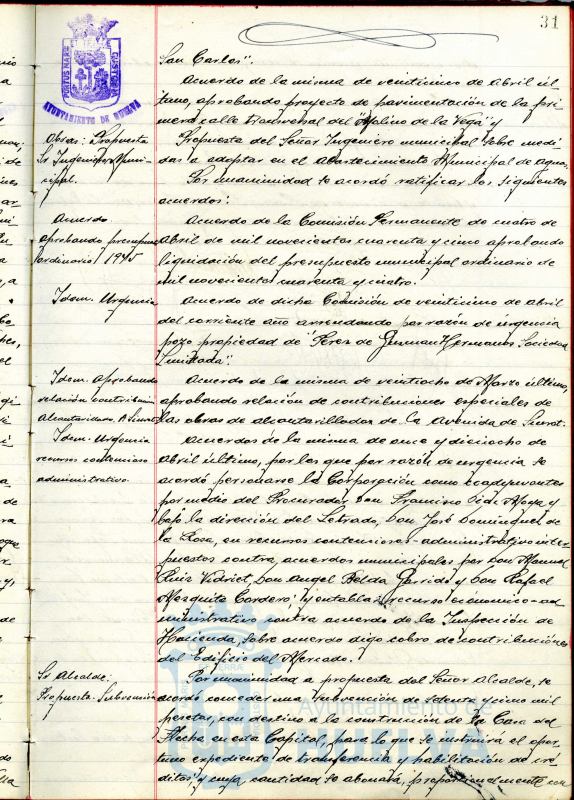 31
PORTUS MARIS ET TERRAE CUSTODIA
AYUNTAMIENTO DE HUELVA
San Carlos".
Acuerdo de la misma de veinticinco de abril úl-
timo, aprobando proyecto de pavimentación de la pri-
mera calle transversal del "Molino de la Vega" y
Obras: Propuesta
Sr Ingeniero Muni-
cipal.
Propuesta del Señor Ingeniero municipal sobre medi-
das a adoptar en el abastecimiento Municipal de aguas.
Por unanimidad se acordó ratificar los siguientes
acuerdos:
Acuerdo
aprobando presupues
ordinario 1945
Acuerdo de la Comisión Permanente de cuatro de
abril de mil novecientos cuarenta y cinco aprobando
liquidación del presupuesto municipal ordinario de
mil novecientos cuarenta y cuatro.
Idem. Urgencia
Acuerdo de dicha Comisión de veinticinco de abril
del corriente año arrendando por razón de urgencia
pozo propiedad de "Perez de Guzman Hermanos Sociedad
Limitada".
Idem. Aprobando
relación contribucio
Alcantarillado. A. Sunot
Acuerdo de la misma de veintiocho de Marzo último,
aprobando relación de contribuciones especiales de
las obras de alcantarillados de la Avenida de
Idem. Urgencia
recurso contencioso
administrativo.
Acuerdos de la misma de once y dieciocho de
Abril último, por los que por razón de urgencia se
acordó personarse la Corporación como coadyuvantes
por medio del Procurador, Don Francisco Moya y
bajo la dirección del Letrado, Don José Dominguez de
la Rosa, en recursos contenciosos-administrativo inter-
puestos contra acuerdos municipales por Don Manuel
Ruiz Don Angel Belda Garrido y Don Rafael
Mezquita Cordero, y entablar recurso económico-ad
ministrativo contra acuerdo de la Inspección de
Hacienda, sobre acuerdo digo cobro de contribuciones
del Edificio del Mercado.
Sr Alcalde:
Propuesta. Subvención
Por unanimidad a propuesta del Señor Alcalde, se
acordó conceder una subvención de setenta y cinco mil
pesetas, con destino a la construcción de la Casa del
Flecha en esta Capital, para lo que se instruirá el opor-
tuno expediente de transferencia y habilitación de cré-
ditos, y cuya cantidad se abonará, proporcionalmente con
Ayuntamiento de
HUELVA